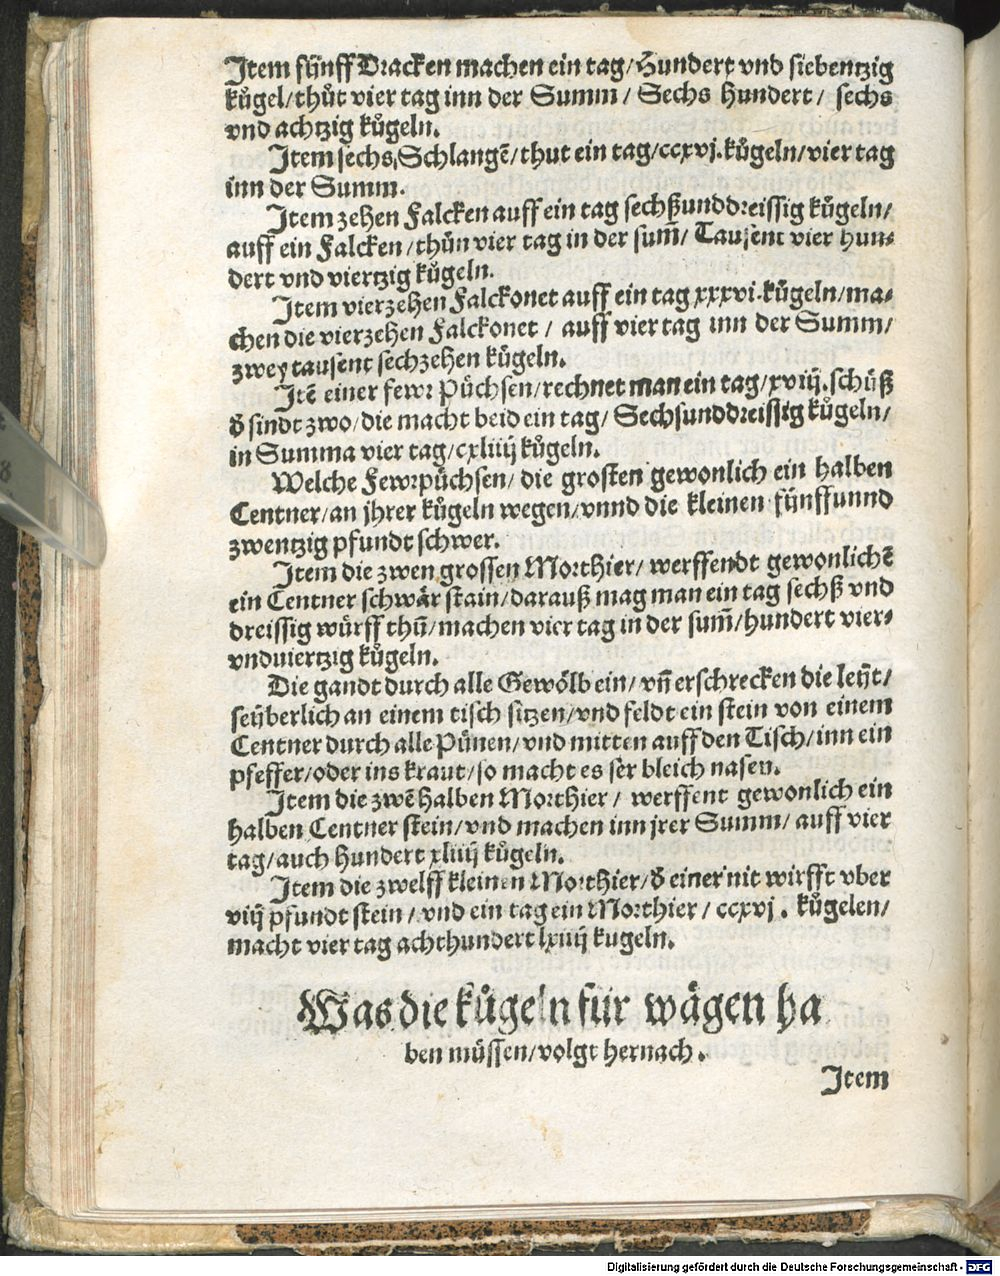 Item fünff Dracken machen ein tag/Hundert vnd siebentzig
kůgel/thůt vier tag inn der Summ/ Sechs Hundert/ sechs
vnd achtzig kůgeln.
Item sechs Schlangē/thut ein tag/ccxvj.kůgeln/vier tag
inn der Summ.
Item zehen Falcken auff ein tag sechßunddreissig kůgeln/
auff ein Falcken/thůn vier tag in der sum̄/ Tausent vier hun⸗
dert vnd viertzig kůgeln.
Item vierzehen Falckonet auff ein tag xxxvi.kůgeln/ma⸗
chen die vierzehen Falckonet/ auff vier tag inn der Summ/
zwey tausent sechzehen kůgeln.
Itē einer fewr Püchsen/rechnet man ein tag/xviij.schüß
d̄ sindt zwo/die macht beid ein tag/ Sechsunddreissig kůgeln/
in Summa vier tag/cxliiij kůgeln.
Welche Fewrpüchsen/ die grosten gewonlich ein halben
Centner/an jhrer kůgeln wegen/vnnd die kleinen fünffunnd
zwentzig pfundt schwer.
Item die zwen grossen Morthier/ werffendt gewonlichē
ein Centner schwår stain/darauß mag man ein tag sechß vnd
dreissig würff thů/machen vier tag in der sum̄/hundert vier⸗
vnduiertzig kůgeln.
Die gandt durch alle Gewölb ein/ vn̄ erschrecken die leüt/
seüberlich an einem tisch sitzen/vnd feldt ein stein von einem
Centner durch alle Pünen/vnd mitten auff den Tisch/inn ein
pfeffer/oder ins kraut/so macht es ser bleich nasen.
Item die zwē halben Morthier/ werffent gewonlich ein
halben Centner stein/vnd machen inn jrer Summ/ auff vier
tag/auch Hundert xliiij kůgeln.
Item die zwelff kleinen Morthier/d̄ einer nit wirfft vber
viij pfundt stein/vnd ein tag ein Morthier/ccxvj. kůgelen/
macht vier tag achthundert lxiiij kugeln.
Was die kůgeln für wägen ha
ben müssen/volgt hernach.
Item
Digitalisierung gefördert durch die Deutsche Forschungsgemeinschaft - DFG